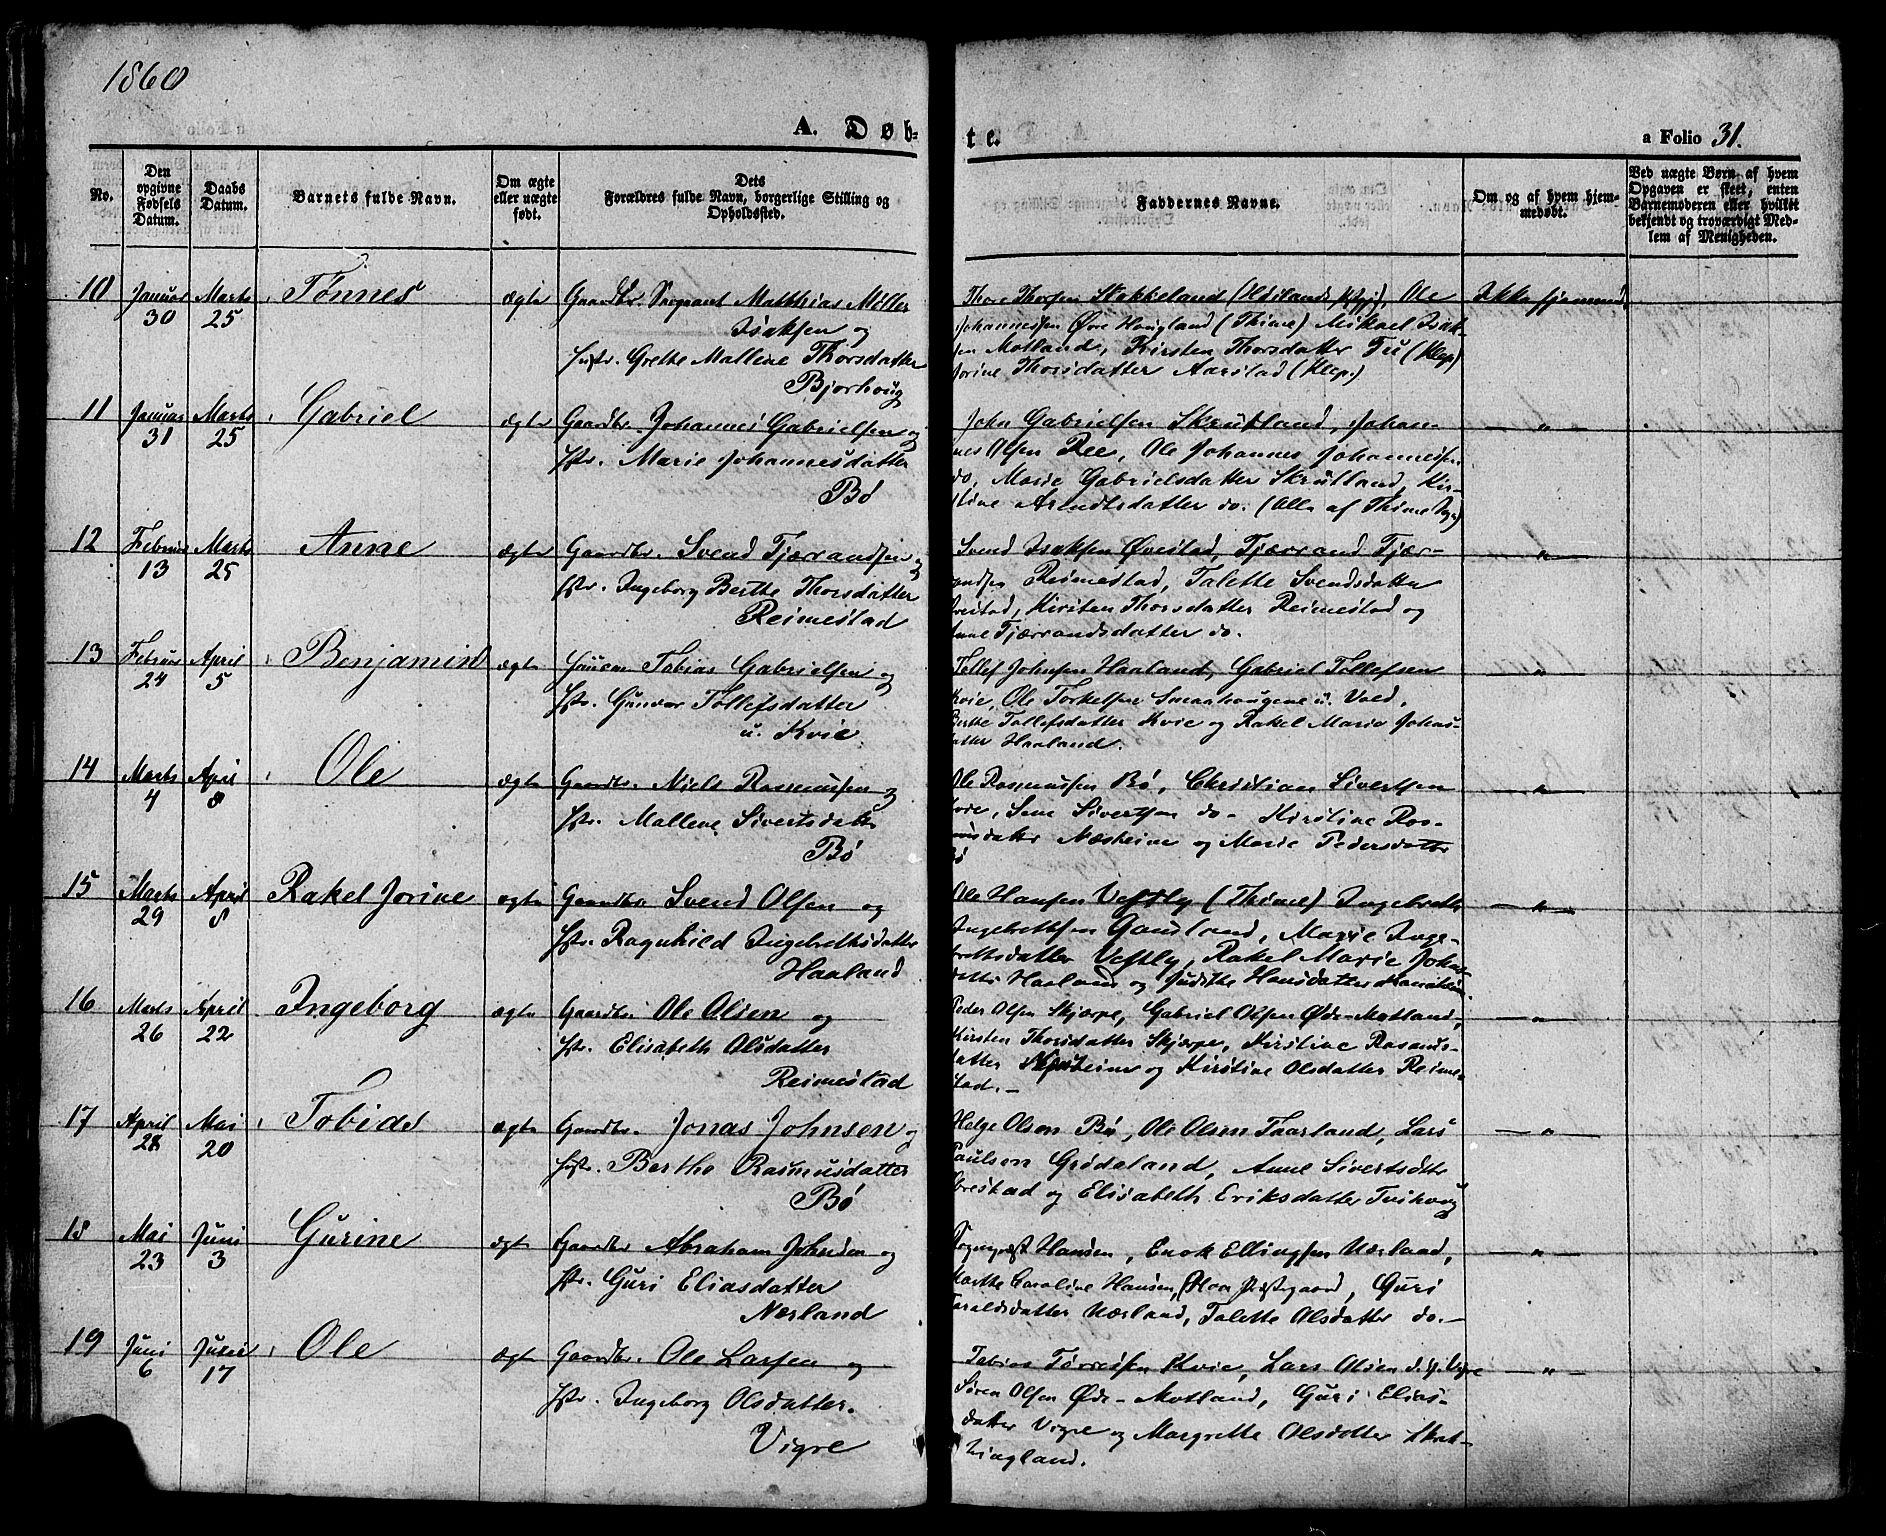 1860
A. Døb-
te.
a Folio 31.
No.
Den opgivne Fødsels Datum.
Daabs Datum.
Barnets fulde Navn.
Om ægte eller uægte født.
Dets Forældres fulde Navn, borgerlige Stilling og Opholdssted.
Faddernes Navne.
Om og af hvem hjem-
medøbt.
Ved uægte Børn af hvem
Opgaven er skeet, enten
Barnemoderen eller hvilket
bekjendt og troværdigt Med-
lem af Menigheden.
10 Januar 30 Marts 25 Tønnes ægte Gaardbr. Sergeant Matthias Møller
Isaksen og
Hstr. Grethe Mallene Thorsdatter
Bjorhoug
Thore Thorsen Stokkeland (Høilands Pgj), Ole Ikke hjemmed.
Johannessen Øvre Hougland (Thime) Mikael Isak-
sen Motland, Kirsten Thorsdatter Tu (Klep)
Jorine Thorsdatter Aarstad (Klep.)
11 Januar 31 Marts 25 Gabriel ægte Gaardbr. Johannes Gabrielsen og
Hstr. Marie Johannesdatter
Bø
John Gabrielsen Skrutland, Johan- — " —
nes Olsen Ree, Ole Johannes Johannessen
do, Marie Gabrielsdatter Skrutland, Kir-
stine Arndtsdatter do. (Alle af Thime Sogn)
12 Februar 13 Marts 25 Anne ægte Gaardbr. Svend Tjærandsen og
Hstr. Ingeborg Berthe Thorsdatter
Reimestad
Svend Isaksen Øvestad, Tjærrand Tjær- — " —
randsen Reimestad, Talette Svendsdatter
Kirsten Thorsdatter Reimestad og
Anne Tjærrandsdatter do.
13 Februar 24 April 5 Benjamin ægte Tobias Gabrielsen og
Hstr. Gunvor Tollefsdatter
u. Kvie
Tollef Johnsen Haaland, Gabriel Tollefsen — " —
Kvie, Ole Torkelsen Smaahougene u. Vold,
Berthe Tollefsdatter Kvie og Rakel Marie Johns-
datter Haaland.
14 Marts 4 April 8 Ole ægte Gaardbr. Niels Rasmussen og
Hstr. Mallene Sivertsdatter
Bø
Ole Rasmussen Bø, Christian Sivertsen — " —
Sivertsen do - Kirstine Ras-
musdatter Næsheim og Marie Pedersdatter
Bø
15 Marts 29 April 8 Rakel Jorine ægte Gaardbr Svend Olsen og
Hstr. Ragnhild Ingebrethsdatter
Haaland
Ole Hansen Vestly (Thime) Ingebreth — " —
Ingebrethsen Gandland, Marie Inge-
brethsdatter Vestly, Rakel Marie Johns-
datter Haaland og Judithe Hansdatter
16 Marts 26 April 22 Ingeborg ægte Gaardbr. Ole Olsen og
Hstr. Elisabeth Olsdatter
Reimestad
Peder Olsen Skjærpe, Gabriel Olsen Øde-Motland, — " —
Kirsten Thorsdatter Skjærpe, Kirstine Rasmus-
datter Næsheim og Kirstine Olsdatter Reime-
stad. -
17 April 28 Mai 20 Tobias ægte Gaardbr. Jonas Johnsen og
Hstr. Berthe Rasmusdatter
Bø
Helge Olsen Bø, Ole Olsen Taarland, Lars — " —
Paulsen Grødeland, Anne Sivertsdttr
Obrestad og Elisabeth Eriksdatter Tvihoug
18 Mai 23 Juni 3 Gurine ægte Gaardbr Abraham Johnsen og
Hstr. Guri Eliasdatter
Nærland
Sognepræst Hansen, Enok Ellingsen Nærland, — " —
Marthe Caroline Hansen, Haa Præstegaard, Guri
Taraldsdatter Nærland, Talette Olsdatter do. -
19 Juni 6 Juni 17 Ole ægte Gaardbr. Ole Larsen og
Hstr. Ingeborg Olsdatter.
Vigre
Tobias Tørresen Kvie, Lars Olsen Vigre — " —
Søren Olsen Øde-Motland, Guri Elias-
datter Vigre og Margrethe Olsdatter Skret-
tingland.